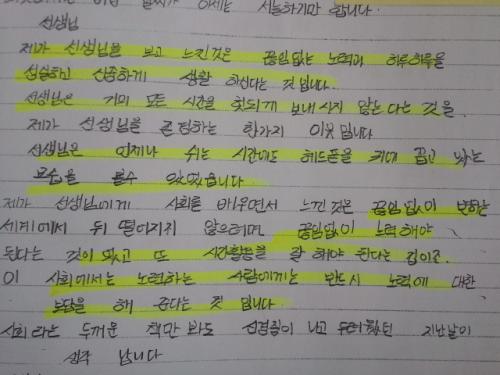 선생님
제가 선생님을 보고 느낀것은 끊임없는 노력과 하루하루를
성실하고 신중하게 생활 하신다는 것 입니다.
선생님은 거의 모든 시간을 헛되게 보내시지 않는다는 것을.
제가 선생님을 존경하는 한가지 이유 입니다
선생님은 언제나 쉬는 시간에도 헤드폰을 귀에 꼽고
모습을 볼수 있었습니다
제가 선생님에게 사회를 배우면서 느낀것은 끊임 없이 변하는
세계에서 뒤 떨어지지 않으려며 끊임없이 노력해야
된다는 것이 였고 또 시간활용을 잘 해야 된다는 점이죠.
이 사회에서는 노력하는 사람에게는 반드시 노력에 대한
보답을 해 준다는 것 입니다
사회라는 두꺼운 책만 봐도 신경질이 나고 지난날이
생각 납니다